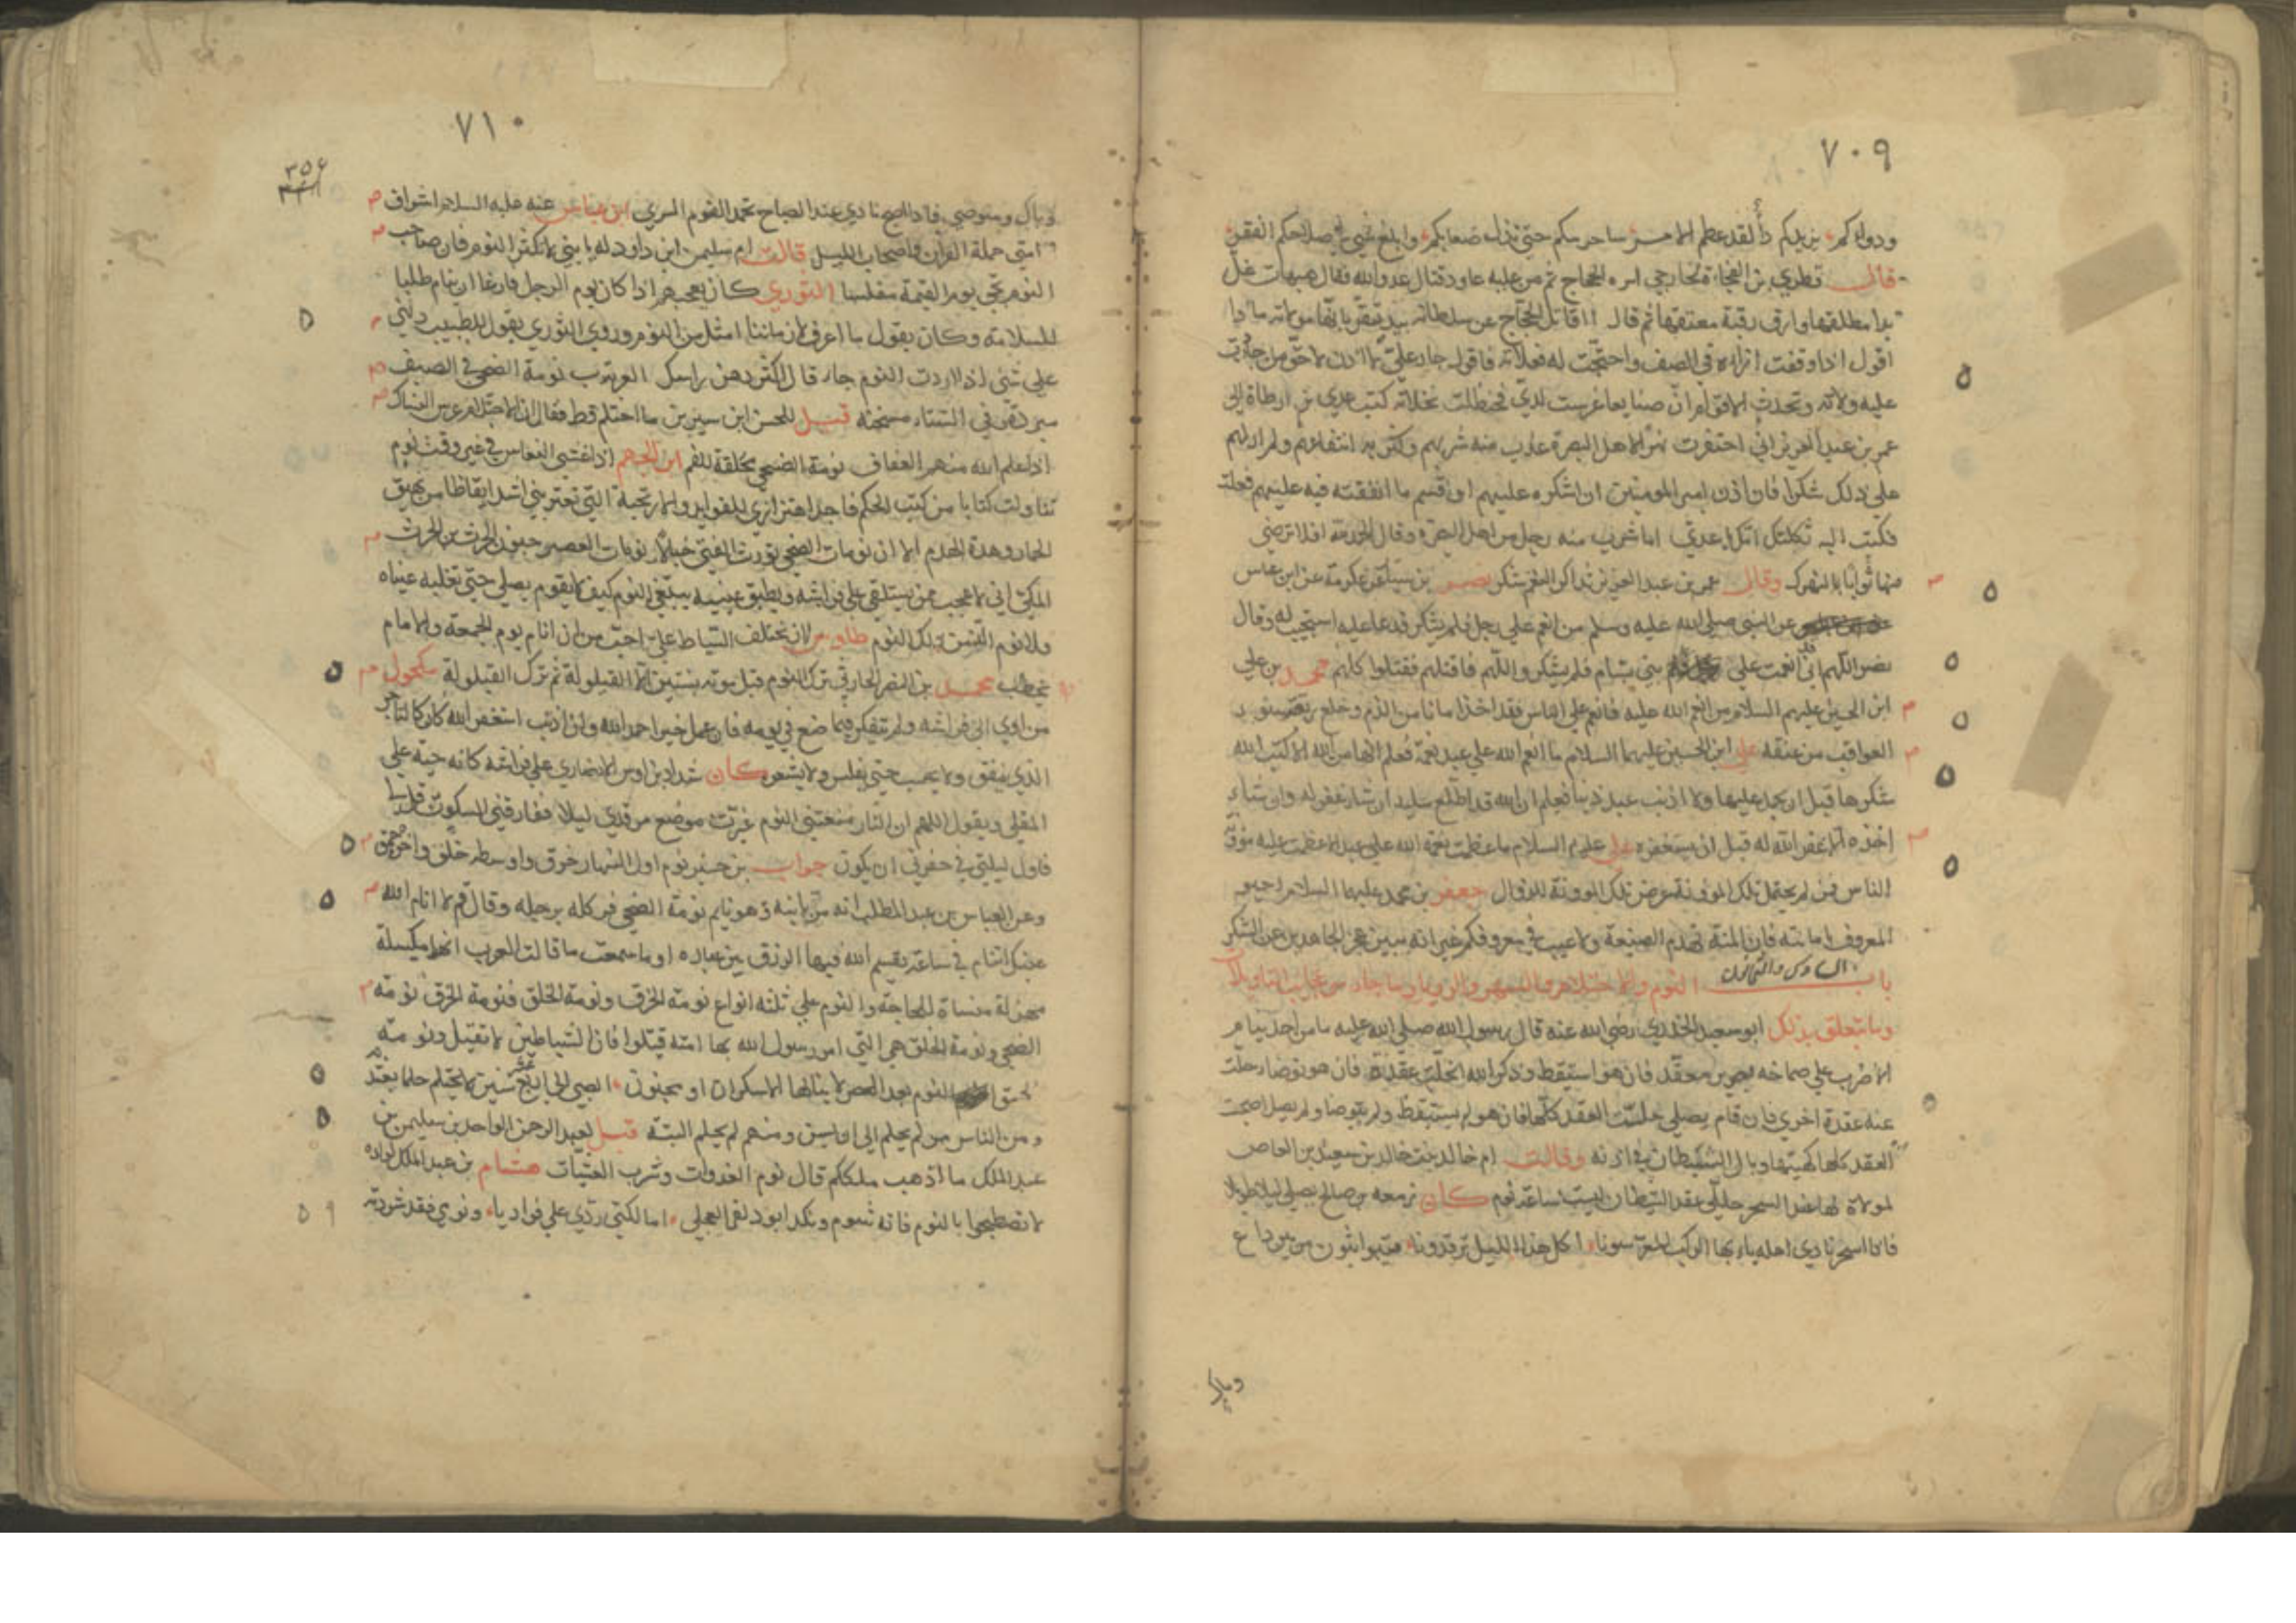 ٧٠٩
ودوائكم يزيدكم داء لقد عظم الامر ساحر سكم حتى تذل صعابكم وابلغ غي في صلاحكم الفقر
قال قطري بن الفجاءة الخارجي اسره الحجاج ثم من عليه عاود قتال عدو الله فقال هيهات غل
يدا مطلقها وارق رقبة معتقها ثم قال أاقاتل الحجاج عن سلطانه بيد تقر بانها مولاته ماذا
اقول اذا وقفت ازاءه في الصف واحتجت له فعلاته فاقول جار علي لا اني اذن لاحق من جارت
عليه ولاته وتحدث الاقوام ان صنايعا غرست لدي فحنظلت نخلاته كتب عدي بن ارطاة الى
عمر بن عبد العزيز اني احتفرت نهرا لاهل البصرة عذب منه شربهم وكثر به انتفاعهم ولم ار لهم
على ذلك شكرا فان اذن امير المومنين ان اشكره عليهم او قسم ما انفقته فيه عليهم فعلت
فكتب اليه ثكلتك امك يا عدي اما شرب منه رجل من اهل البصرة وقال الحمد لله افلا ترضى
بها ثوابا بالنهرك وقال عمر بن عبد العزيز تذاكروا النعم شكر نصر بن سيار عن عكرمة عن ابن عباس
عن النبي صلى الله عليه وسلم من انعم على رجل فلم يشكر فدعا عليه استجيب له وقال
نصر اللهم اني قد انعمت على بني بسام فلم يشكروا اللهم فاقتلهم فقتلوا كلهم محمد بن علي
ابن الحسين عليهم السلام من انعم الله عليه فانعم على الناس فقد اخذ امانا من الذم وخلع ربقة سوء
العواقب من عنقه علي ابن الحسين عليهما السلام ما انعم الله على عبد نعمة فعلم انها من الله الا كتب الله
شكرها قبل ان يحمد عليها ولا اذنب عبد ذنبا فعلم ان الله قد اطلع عليه ان شاء غفر له وان شاء
اخذه الا غفر الله له قبل ان يستغفره علي عليه السلام ما عظمت نعمة الله على عبد الا عظمت عليه مؤنة
الناس فمن لم يحتمل تلك المؤونة عرض تلك المؤونة للزوال جعفر بن محمد عليهما السلام احيو
المعروف باماتته فان المنة تهدم الصنيعة ولا عيب في معروفكم غير انه يبين عجز الجاهدين عن الشكر
باب السادس والثمانون النوم والاحتلام والسهر والرويا وما جاء من عجائب التاويلات
وما يتعلق بذلك ابو سعيد الخدري رضي الله عنه قال رسول الله صلى الله عليه ما من احد ينام
الا ضرب على صماخه بجرير معقد فان هو استيقظ وذكر الله انحلت عقدة فان هو توضا حلت
عنه عقدة اخرى فان قام يصلي حلت العقد كلها فان هو لم يستيقظ ولم يتوضا ولم يصل اصبحت
العقد كلها كهيئتها وبال الشيطان في اذنه وقالت ام خالد بنت خالد بن سعيد بن العاص
لمولاة لها عند السحر حلي عقد الشيطان ليست ساعة نوم كان زمعة بن صالح يصلي ليلا طويلا
فاذا اسحر نادى اهله يا ايها الركب المعرسونا اكل هذا الليل ترقدونا فيتواثبون من بين داع
وباك
٧١٠
٣٥٤
وباك ومتوضي فاذا اصبح نادى عند الصباح يحمد القوم السرى ابن عباس عنه عليه السلام اشراف
امتي حملة القران واصحاب الليل قالت ام سليمن ابن داود له يا بني لا تكثر النوم فان صاحب
النوم يجي يوم القيمة مفلسا الثوري كان يعجبهم اذا كان يوم الرجل فارغا ان ينام طلبا
للسلامة وكان يقول ما اعرف لزماننا امثل من النوم وروي الثوري يقول للطبيب دلني
على شئ اذا اردت النوم جاء قال اكثر دهن راسك العرب نومة الضحى في الصيف
مبردة وفي الشتاء مسخنة قيل للحسن ابن سيرين ما احتلم قط فقال ان الاحتلام عرس النساك
اذا علم الله منهم العفاف نومة الضحى مخلقة للفم ابن الجهم اذا غشي النعاس في غير وقت نوم
تناولت كتابا من كتب الحكم فاجد اهتزازي للفوايد والاريحية التي تعتريني اشد ايقاظا من نهيق
الحمار وهدة الهدم الا ان نومات الضحى تورث الفتى خبالا ونومات العصير جنون الحرث بن الحرث
المكي اني لاعجب ممن يستلقي على فراشه ويطبق عينيه يبتغي النوم كيف لا يقوم يصلي حتى تغلبه عيناه
ولا نوم الذ من ذلك النوم طاوس لان تختلف السياط علي احب من ان انام يوم الجمعة والامام
يخطب محمد بن النضر الحارثي ترك النوم قبل موته بسنتين الا القيلولة ثم ترك القيلولة مكحول
من اوى الى فراشه ولم يتفكر فيما صنع في يومه فان عمل خيرا حمد الله وان اذنب استغفر الله كان كالتاجر
الذي ينفق ولا يحسب حتى يفلس ولا يشعر كان شداد بن اوس الانصاري على فراشه كانه حبة على
المقلى ويقول اللهم ان النار منعتني النوم غيرت موضع مرقدي ليلا ففارقني السكون قل لي
فاول ليلتي في حفرتي اني يكون خوات بن جبير نوم اول النهار خرق واوسطه خلق واخره حمق
وعن العباس بن عبد المطلب انه مر بابنه وهو نايم نومة الضحى فركله برجله وقال قم لا انام الله
عينك اتنام في ساعة يقسم الله فيها الرزق بين عباده اوما سمعت ما قالت العرب انها مكسلة
مهزلة منساة للحاجة والنوم على ثلثة انواع نومة الخرق ونومة الخلق فنومة الخرق نومة
الضحى ونومة الخلق هي التي امر رسول الله بها امته قيلوا فان الشياطين لا تقيل ونومة
الحمق النوم بعد العصر لا ينالها الا سكران او مجنون الصبي الى ابلغ سنين لا يحتلم حلما يعتد
ومن الناس من لم يحلم الى ان يسن ومنهم لم يحلم البتة قيل لعبد الرحمن الواحد بن سليمن بن
عبد الملك ما اذهب ملككم قال نوم الغدوات وشرب العشيات هشام بن عبد الملك لولاده
لا تصطبحوا بالنوم فانه شوم ونكد ابو دلف العجلي اما لكتي ردي علي فواديا ونومي فقد شردته